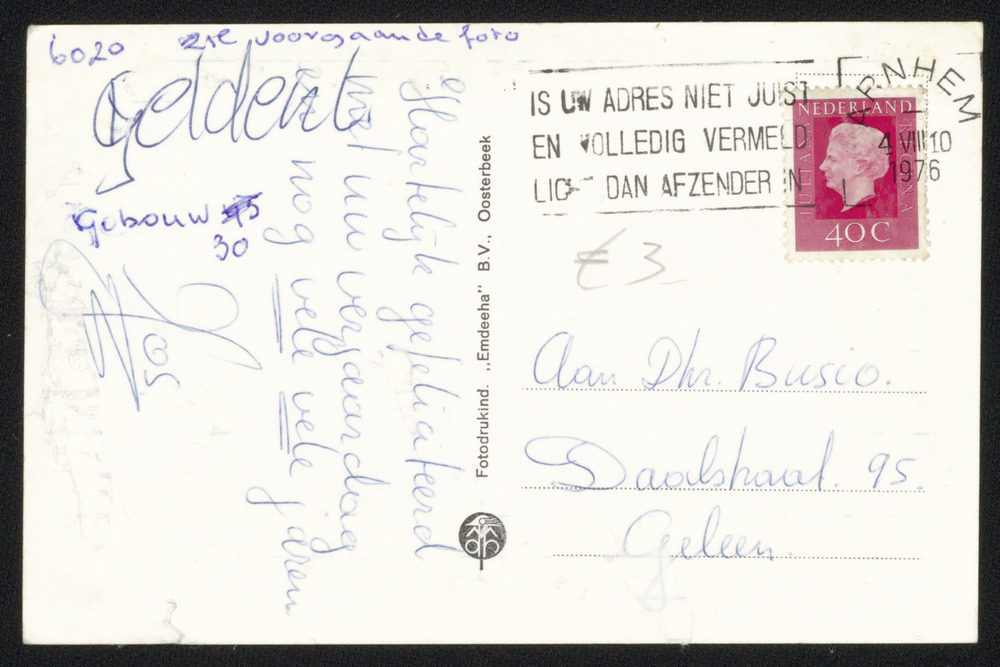 6020 zie voorgaande foto
geldent
Gebouw 45
30
Hartelijk gefeliciteerd
met uw verjaardag
nog vele vele jaren
Jos
Fotodrukind. „Emdeeha" B.V., Oosterbeek
IS UW ADRES NIET JUIST
EN VOLLEDIG VERMELD
LICHT DAN AFZENDER IN
ARNHEM
4 VIII 10
1976
NEDERLAND
JULIANA REGINA
40 C
€ 3
Aan Dhr. Busio.
Daalstraat 95.
Geleen.